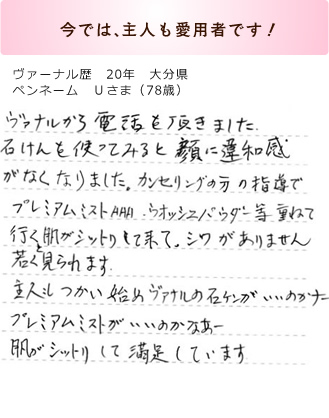 今では、主人も愛用者です！
ヴァーナル歴　20年　大分県
ペンネーム　Ｕさま（78歳）
ヴァナルから電話を頂きました.
石けんを使ってみると顔に違和感
がなくなりました。カンセリングの方の指導で
プレミアムミストAAA.ウオッシュパウダー等重ねて
行くと肌がシットリして来て。シワがありません
若く見られます.
主人もつかい始めヴァナルの石ケンがいいのかナー
プレミアムミストがいいのかなあー
肌がシットリして満足しています